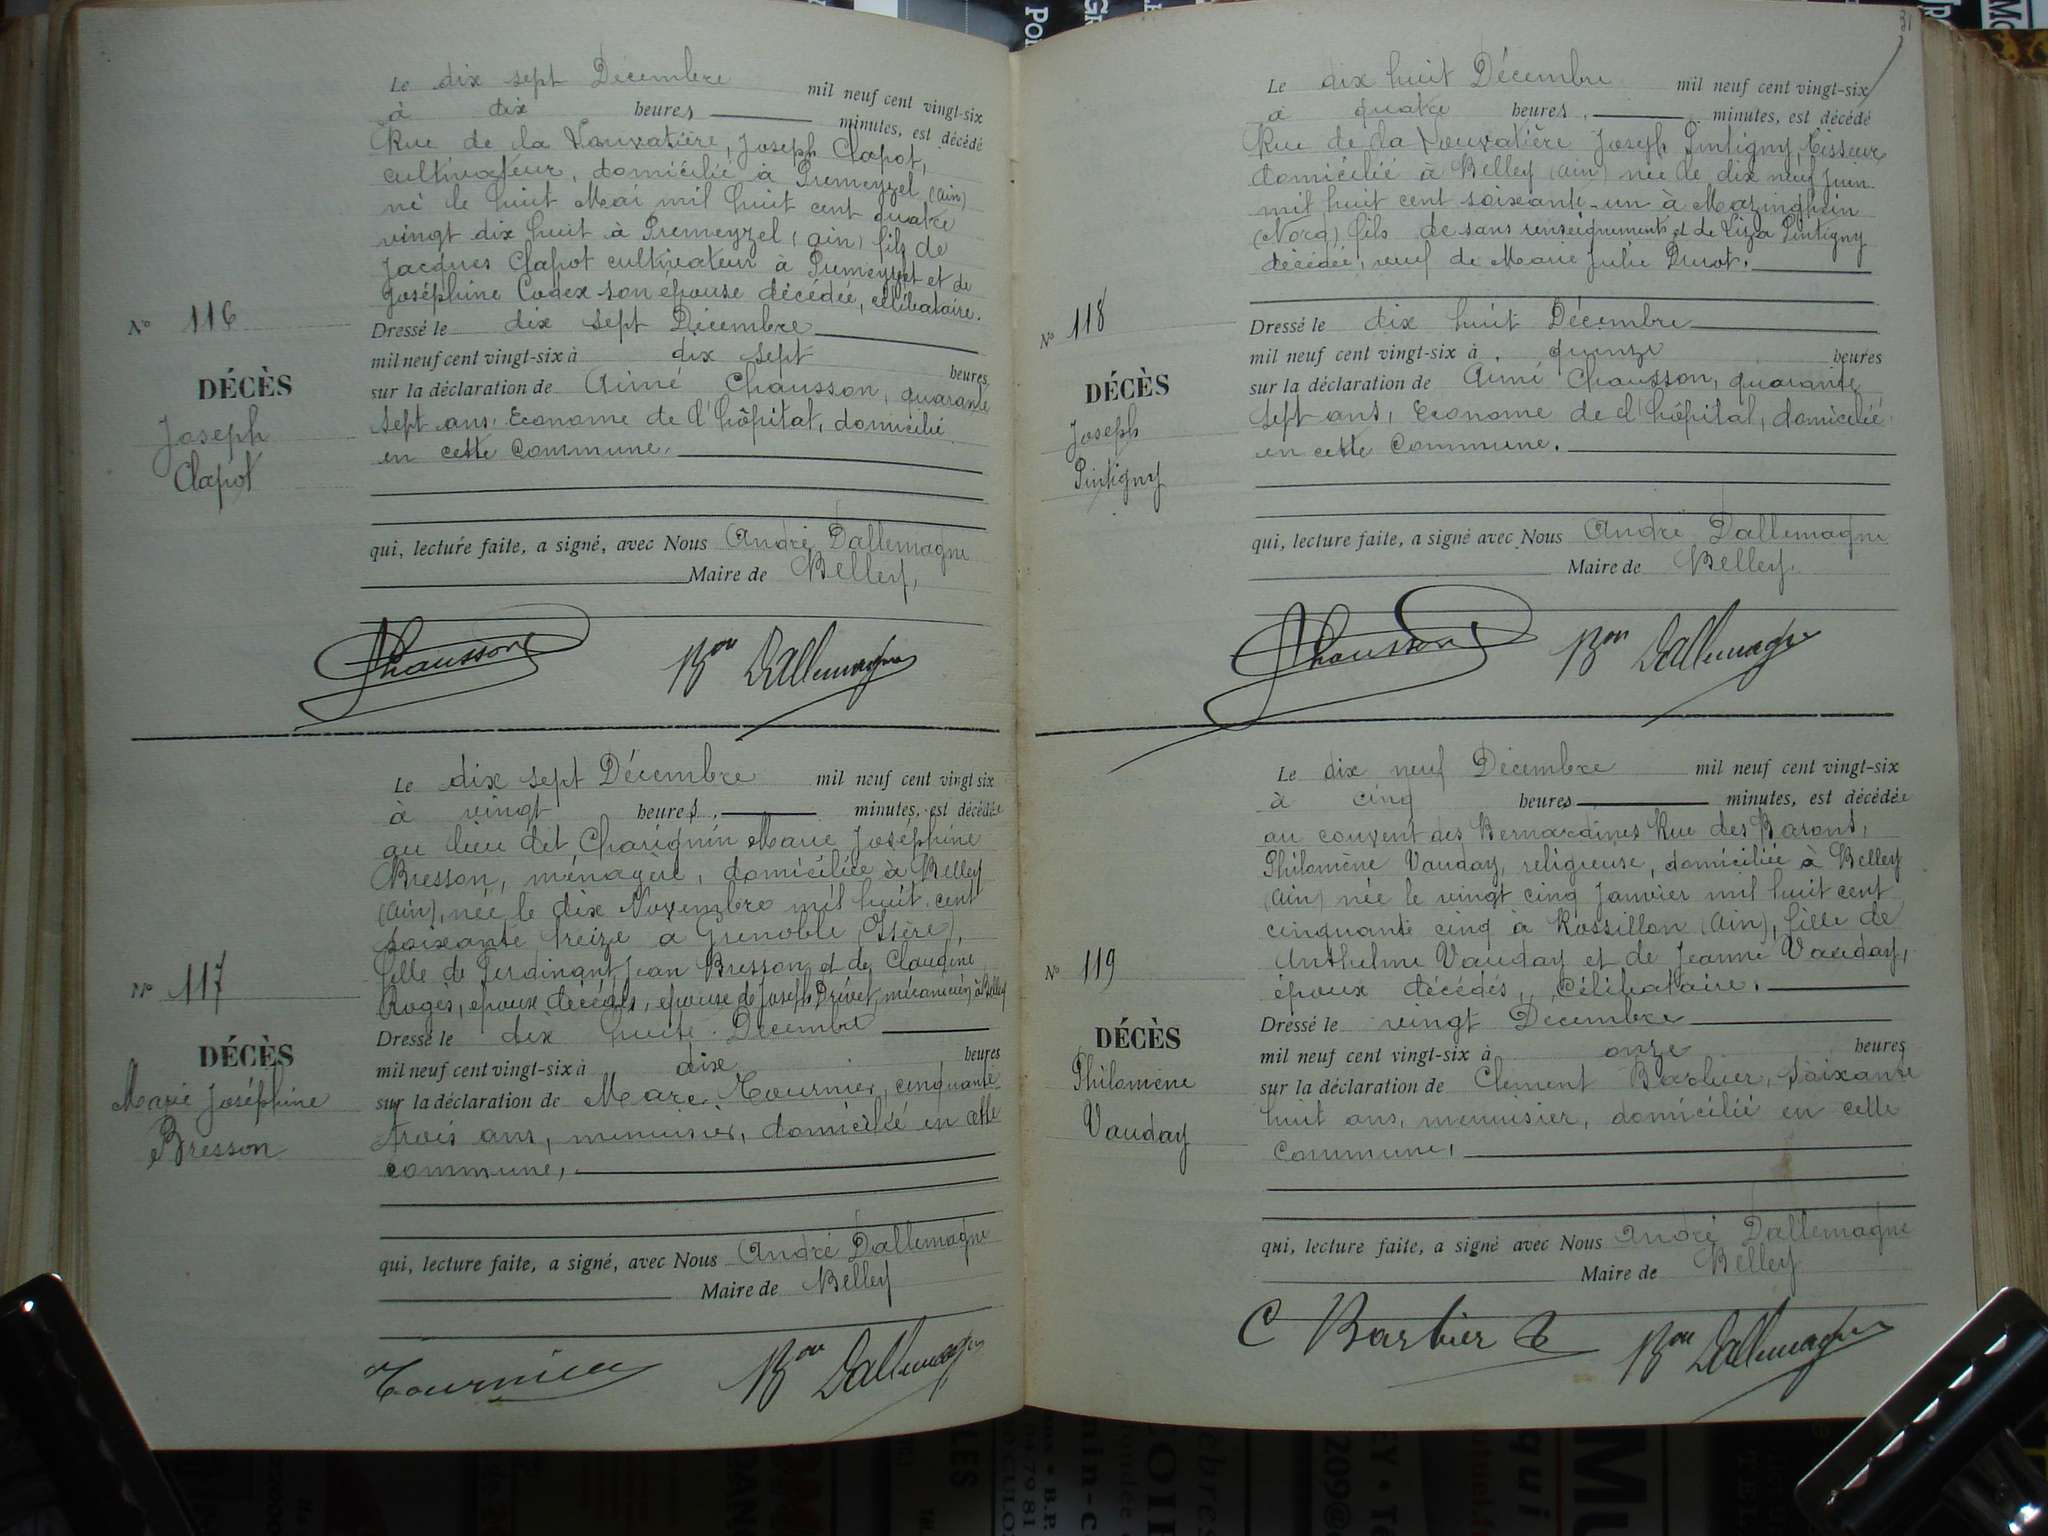 Le dix sept Décembre mil neuf cent vingt-six
à dix heures minutes, est décédé
Rue de la Louvatière, Joseph Clapot,
cultivateur, domicilié à Premeyzel (Ain)
né le huit Mai mil huit cent quatre
vingt dix huit à Premeyzel (Ain) fils de
Jacques Clapot cultivateur à Premeyzel et de
Joséphine Codex son épouse décédée, célibataire.
Nº 116
DÉCÈS
Joseph
Clapot
Dressé le dix sept Décembre
mil neuf cent vingt-six à dix sept heures,
sur la déclaration de Aimé Chausson, quarante
sept ans, Econome de l'hôpital, domicilié
en cette Commune,
qui, lecture faite, a signé, avec Nous André Dallemagne
Maire de Belley,
Chausson Bon Dallemagne
Le dix sept Décembre mil neuf cent vingt-six
à vingt heures, minutes, est décédée
au lieu dit Charignin Marie Joséphine
Bresson, ménagère, domiciliée à Belley
(Ain), née le dix Novembre mil huit cent
soixante treize a Grenoble (Isère),
fille de Ferdinant Jean Bresson et de Claudine
Roges, époux décédés, épouse de Joseph Prévet, mécanicien à Belley
Nº 117
DÉCÈS
Marie Joséphine
Bresson
Dressé le dix huit Décembre
mil neuf cent vingt-six à dix heures
sur la déclaration de Marc Tournier, cinquante
trois ans, menuisier, domicilié en cette
commune,
qui, lecture faite, a signé, avec Nous André Dallemagne
Maire de Belley
Tournier Bon Dallemagne
31
Le dix huit Décembre mil neuf cent vingt-six
à quatre heures, minutes, est décédé
Rue de la Louvatière Joseph Pintigny, Tisseur
domicilié à Belley (Ain) née le dix neuf Juin
mil huit cent soixante-un à Mazinghein
(Nord) fils de sans renseignements et de Liza Pintigny
décédée, veuf de Marie Julie Durot.
Nº 118
DÉCÈS
Joseph
Pintigny
Dressé le dix huit Décembre
mil neuf cent vingt-six à quinze heures
sur la déclaration de Aimé Chausson, quarante
sept ans, Econome de l'hôpital, domicilié
en cette Commune.
qui, lecture faite, a signé avec Nous André Dallemagne
Maire de Belley.
Chausson Bon Dallemagne
Le dix neuf Décembre mil neuf cent vingt-six
à cinq heures minutes, est décédée
au couvent des Bernardines Rue des Barons,
Philomène Vauday, religieuse, domiciliée à Belley
(Ain) née le vingt cinq Janvier mil huit cent
cinquante cinq à Rossillon (Ain), fille de
Anthelme Vauday et de Jeanne Vauday,
époux décédés, Célibataire.
Nº 119
DÉCÈS
Philomène
Vauday
Dressé le vingt Décembre
mil neuf cent vingt-six à onze heures
sur la déclaration de Clément Barbier, soixante
huit ans, menuisier, domicilié en cette
Commune,
qui, lecture faite, a signé avec Nous André Dallemagne
Maire de Belley
C Barbier Bon Dallemagne